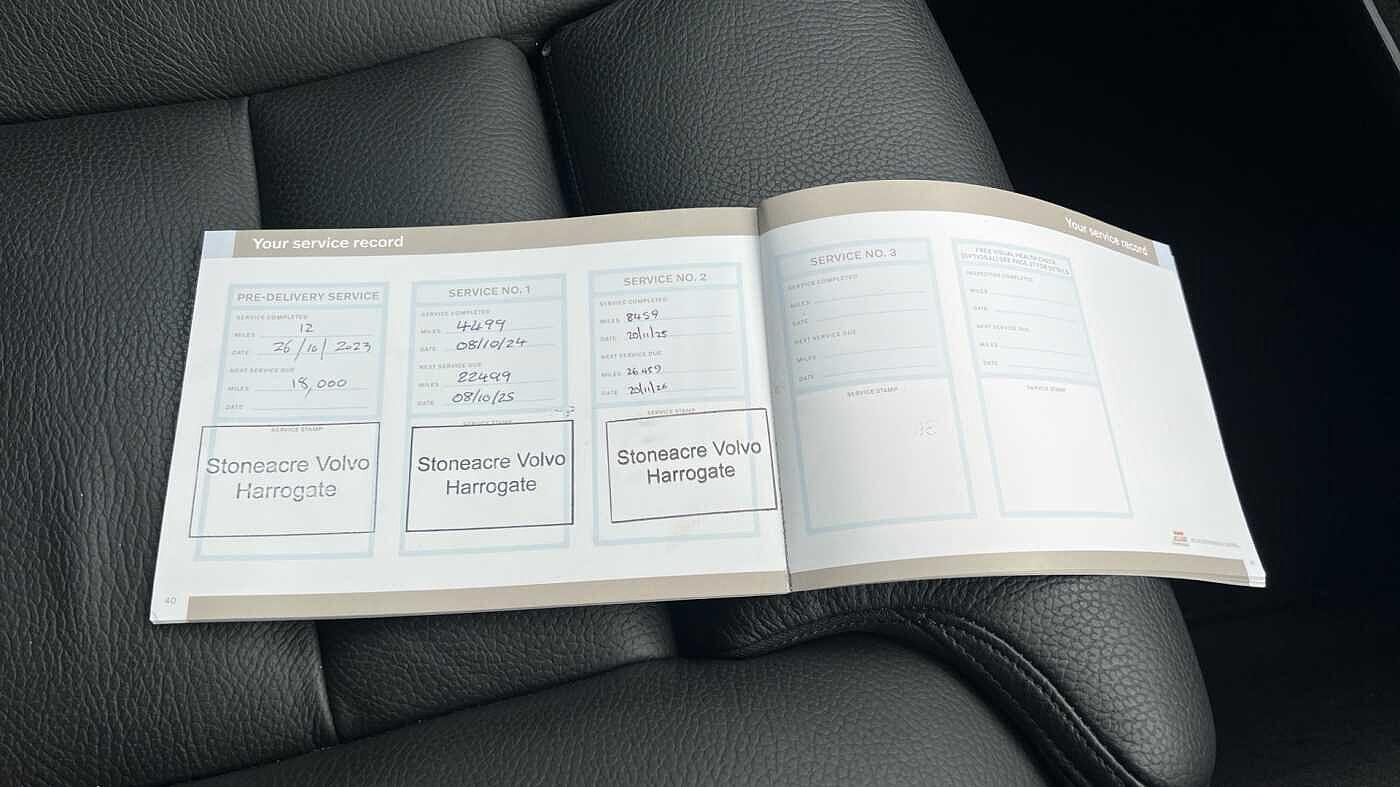 Your service record
PRE-DELIVERY SERVICE
SERVICE COMPLETED
MILES 12
DATE 26/10/2023
NEXT SERVICE DUE
MILES 18,000
DATE
SERVICE STAMP
Stoneacre Volvo
Harrogate
SERVICE NO. 1
SERVICE COMPLETED
MILES 4499
DATE 08/10/24
NEXT SERVICE DUE
MILES 22499
DATE 08/10/25
SERVICE STAMP
Stoneacre Volvo
Harrogate
SERVICE NO. 2
SERVICE COMPLETED
MILES 8459
DATE 20/11/25
NEXT SERVICE DUE
MILES 26.459
DATE 20/11/26
SERVICE STAMP
Stoneacre Volvo
Harrogate
40
Your service record
SERVICE NO. 3
SERVICE COMPLETED
MILES
DATE
NEXT SERVICE DUE
MILES
DATE
SERVICE STAMP
FREE VISUAL HEALTH CHECK
(OPTIONAL) SEE PAGE 27 FOR DETAILS
INSPECTION COMPLETED
MILES
DATE
NEXT SERVICE DUE
MILES
DATE
SERVICE STAMP